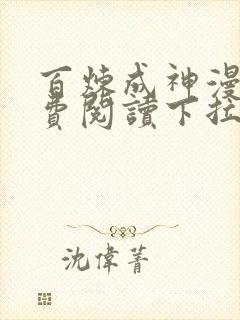 百炼成神漫
费閱讀下拉
沈偉菁